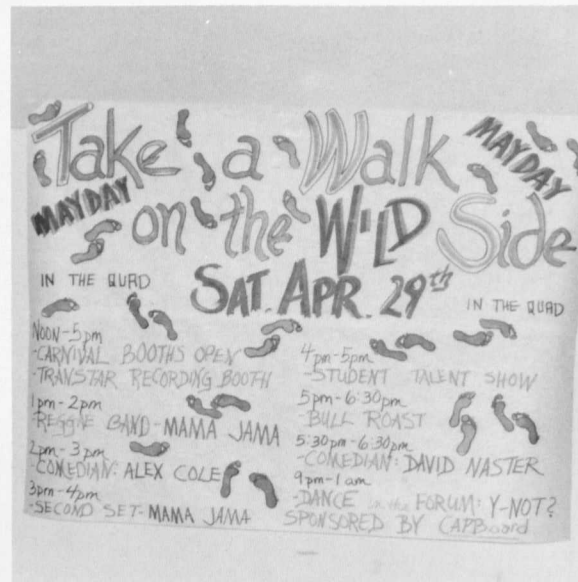 Take a Walk
MAYDAY
MAYDAY
on the WILD Side
SAT. APR. 29th
IN THE QUAD
IN THE QUAD
NOON-5pm
-CARNIVAL BOOTHS OPEN
-TRANSTAR RECORDING BOOTH
1pm-2pm
-REGGAE BAND-MAMA JAMA
2pm-3pm
-COMEDIAN: ALEX COLE
3pm-4pm
-SECOND SET-MAMA JAMA
4pm-5pm
-STUDENT TALENT SHOW
5pm-6:30pm
-BULL ROAST
5:30pm-6:30pm
-COMEDIAN: DAVID NASTER
9pm-1am
-DANCE in the FORUM: Y-NOT?
SPONSORED BY CAPBoard